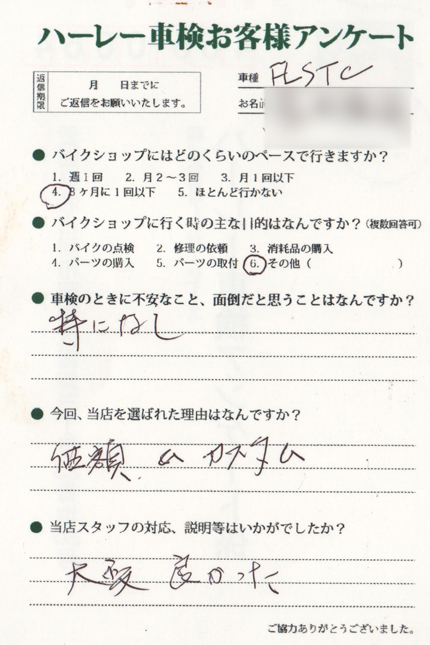 ハーレー車検お客様アンケート
返信期限
月　日までに
ご返信をお願いいたします。
車種 FLSTC
お名前
● バイクショップにはどのくらいのペースで行きますか？
1. 週1回　2. 月2～3回　3. 月1回以下
4. 3ヶ月に1回以下　5. ほとんど行かない
● バイクショップに行く時の主な目的はなんですか？(複数回答可)
1. バイクの点検　2. 修理の依頼　3. 消耗品の購入
4. パーツの購入　5. パーツの取付　6. その他（　　　　）
● 車検のときに不安なこと、面倒だと思うことはなんですか？
特になし
● 今回、当店を選ばれた理由はなんですか？
価額 カスタム
● 当店スタッフの対応、説明等はいかがでしたか？
大変 良かった
ご協力ありがとうございました。